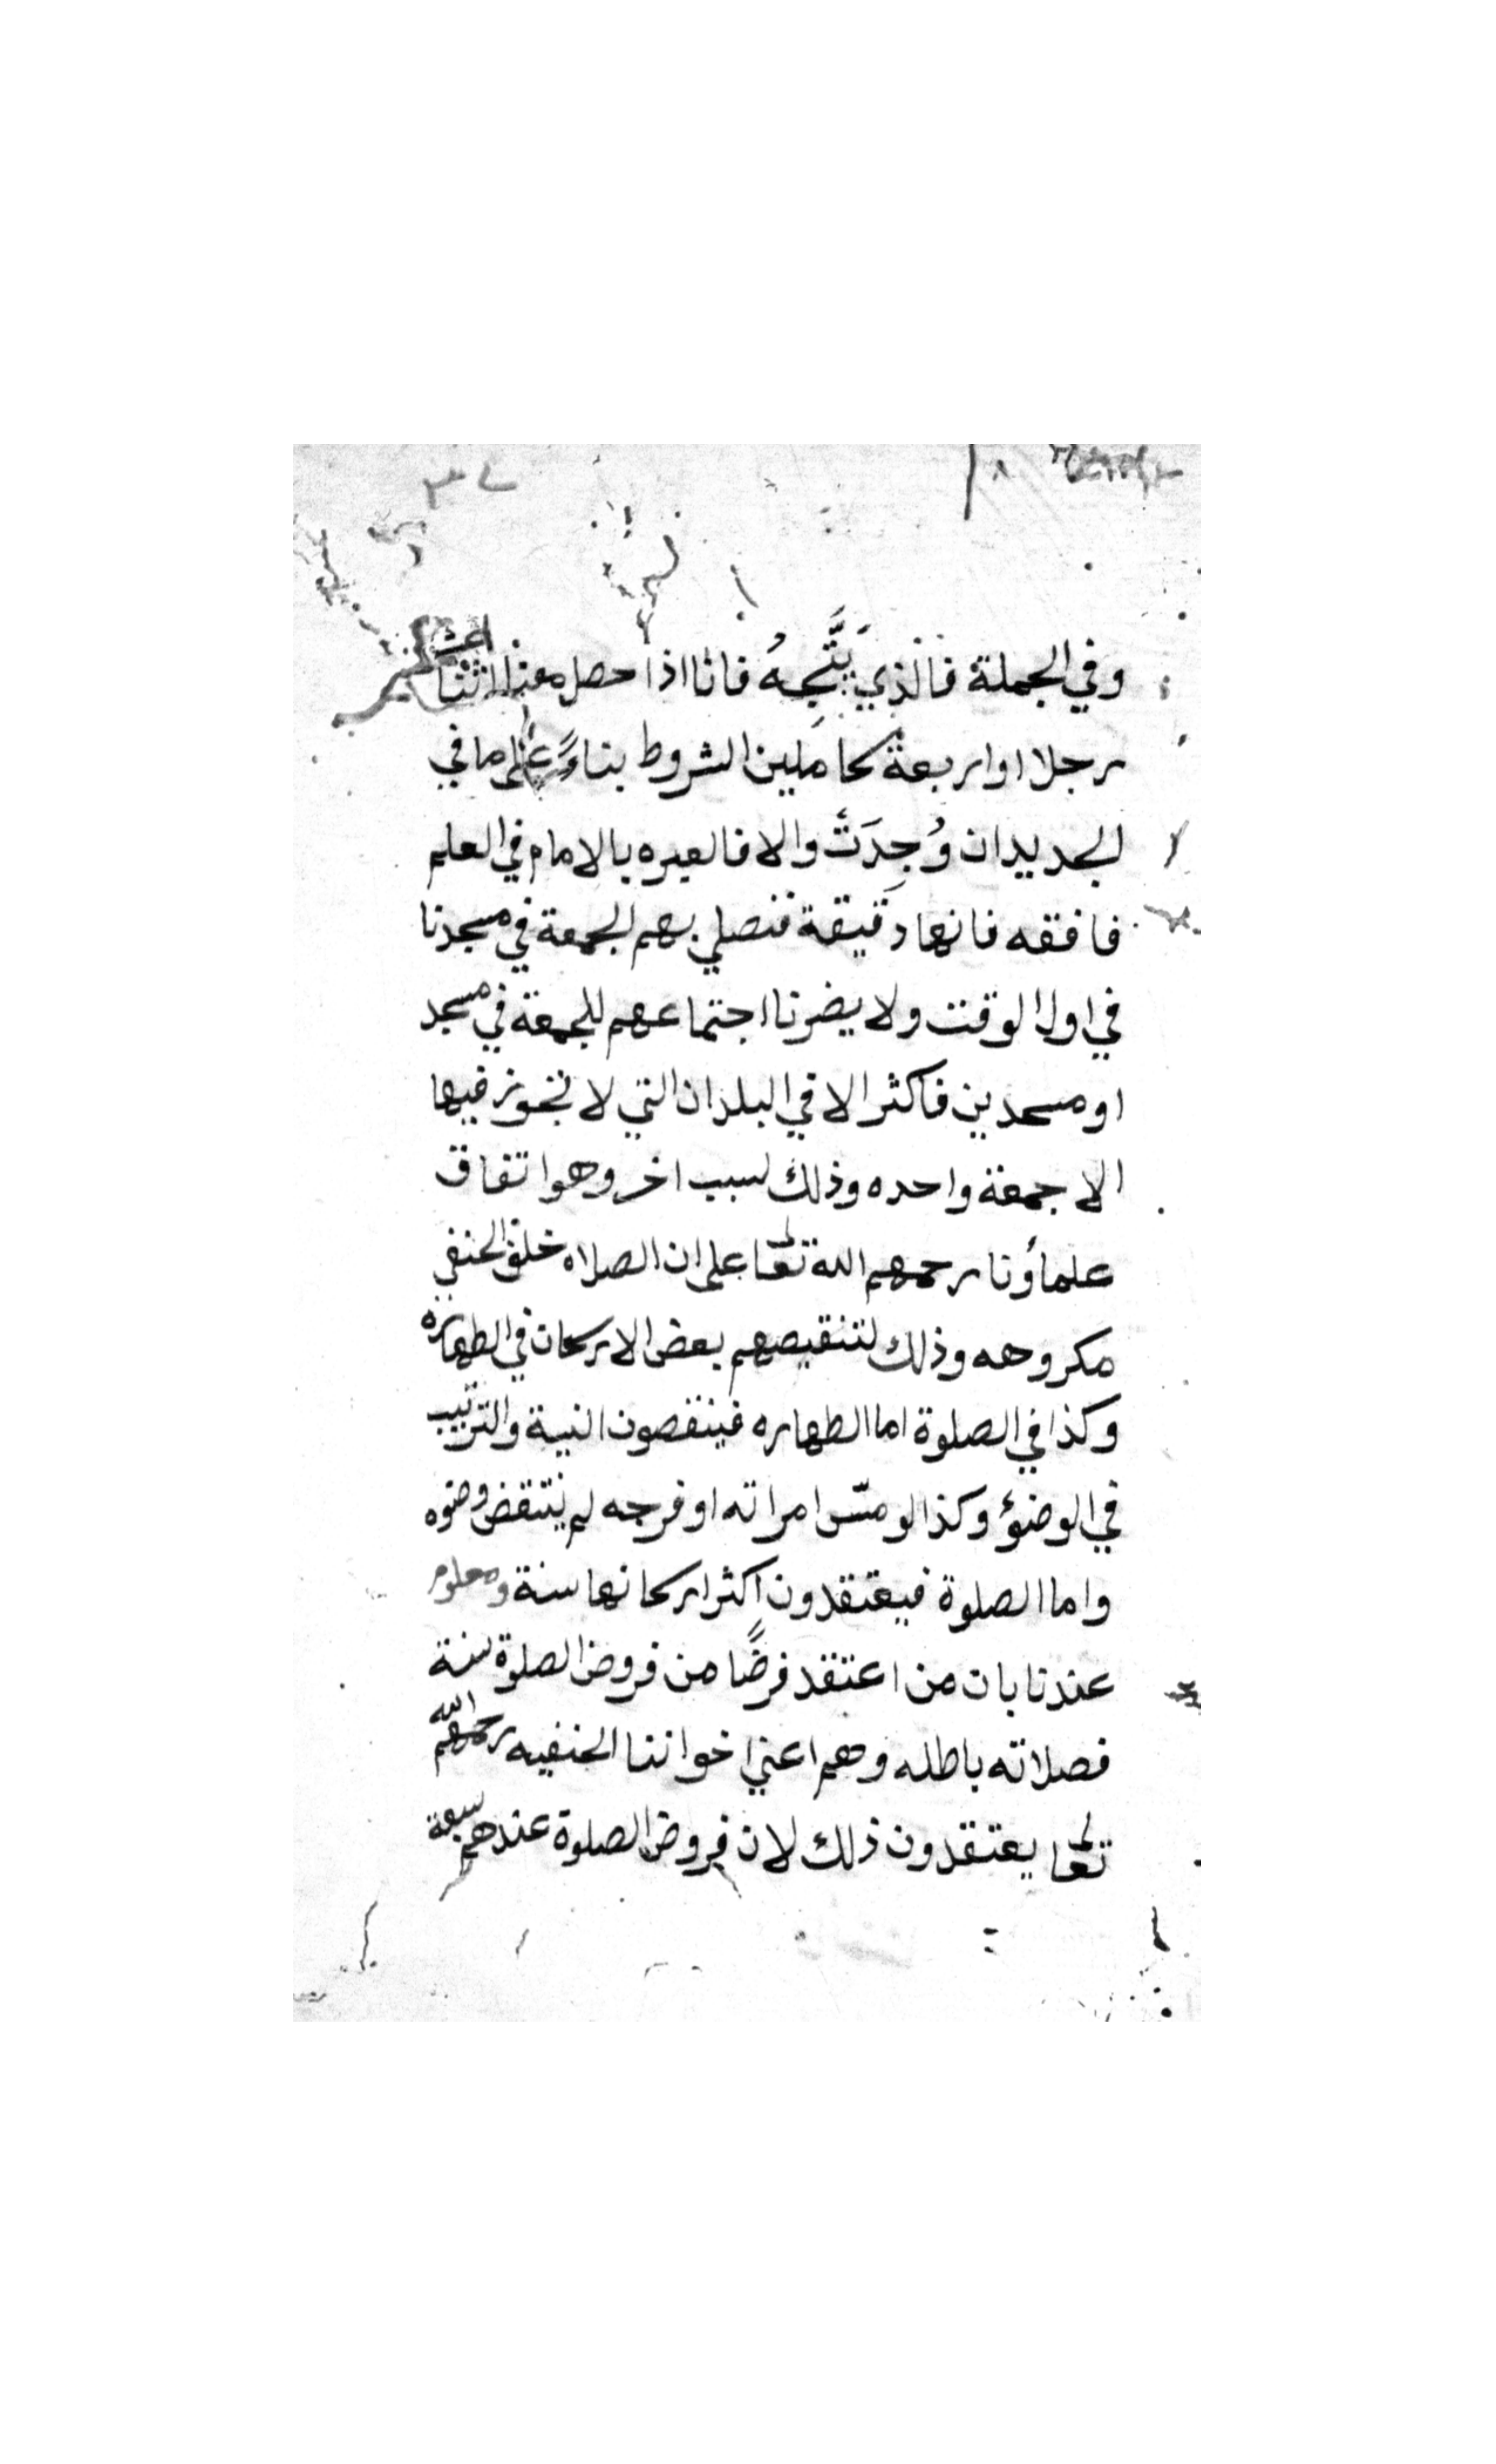 وفي الجملة فالذي يَتَّجِهُ فانا اذا حصل معنا اثنا عشر
رجلا او اربعة كاملين الشروط بناءً على ما في
الجديد ان وُجِدَتْ والا فالعبره بالامام في العلم
فافقه فانها دقيقة فنصلي بهم الجمعة في مسجدنا
في اول الوقت ولا يضرنا اجتماعهم للجمعة في مسجد
او مسجدين فاكثر الا في البلدان التي لا تجوز فيها
الا جمعة واحده وذلك لسبب اخر وهو اتفاق
علماؤنا رحمهم الله تعالى على ان الصلاه خلف الحنفي
مكروهه وذلك لتنقيصهم بعض الاركان في الطهاره
وكذا في الصلوة اما الطهاره فينقصون النية والترتيب
في الوضوء وكذا لو مسّ امراته او فرجه لم ينتقض وضوه
واما الصلوة فيعتقدون اكثر اركانها سنة ومعلوم
عندنا بان من اعتقد فرضًا من فروض الصلوة سنة
فصلاته باطله وهم اعني اخواننا الحنفيه رحمهم الله
تعالى يعتقدون ذلك لان فروض الصلوة عندهم سبعة